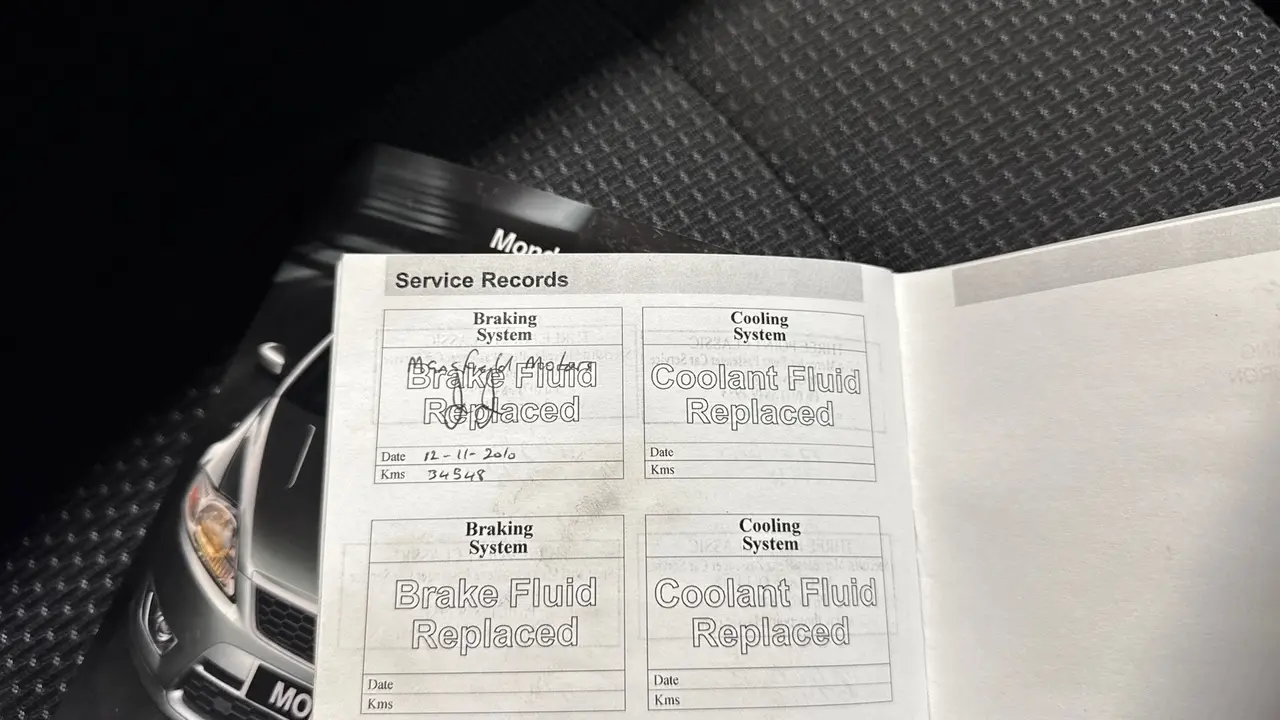 Mond
Service Records
Braking
System
Mansfield Motors
Brake Fluid
Replaced
Date 12-11-2010
Kms 34548
Cooling
System
Coolant Fluid
Replaced
Date
Kms
Braking
System
Brake Fluid
Replaced
Date
Kms
Cooling
System
Coolant Fluid
Replaced
Date
Kms
MO